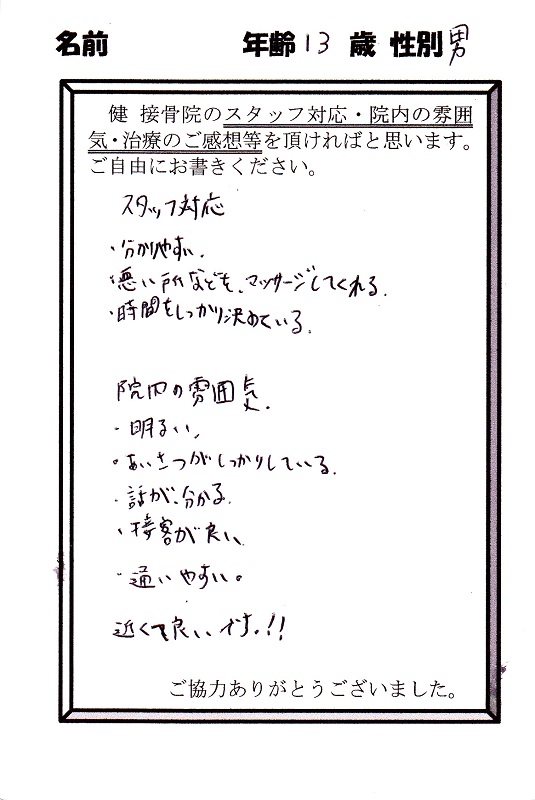 名前 年齢 13 歳 性別 男
健 接骨院のスタッフ対応・院内の雰囲
気・治療のご感想等を頂ければと思います。
ご自由にお書きください。
スタッフ対応
・分かりやすい.
・悪い所なども、マッサージしてくれる.
・時間をしっかり決めている.
院内の雰囲気.
・明るい、
・あいさつがしっかりしている.
・話が、分かる.
・接客が良い、
・通いやすい。
近くて良いです.!!
ご協力ありがとうございました。